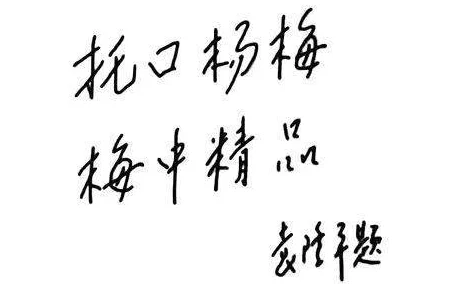 托口杨梅
梅中精品
袁隆平题